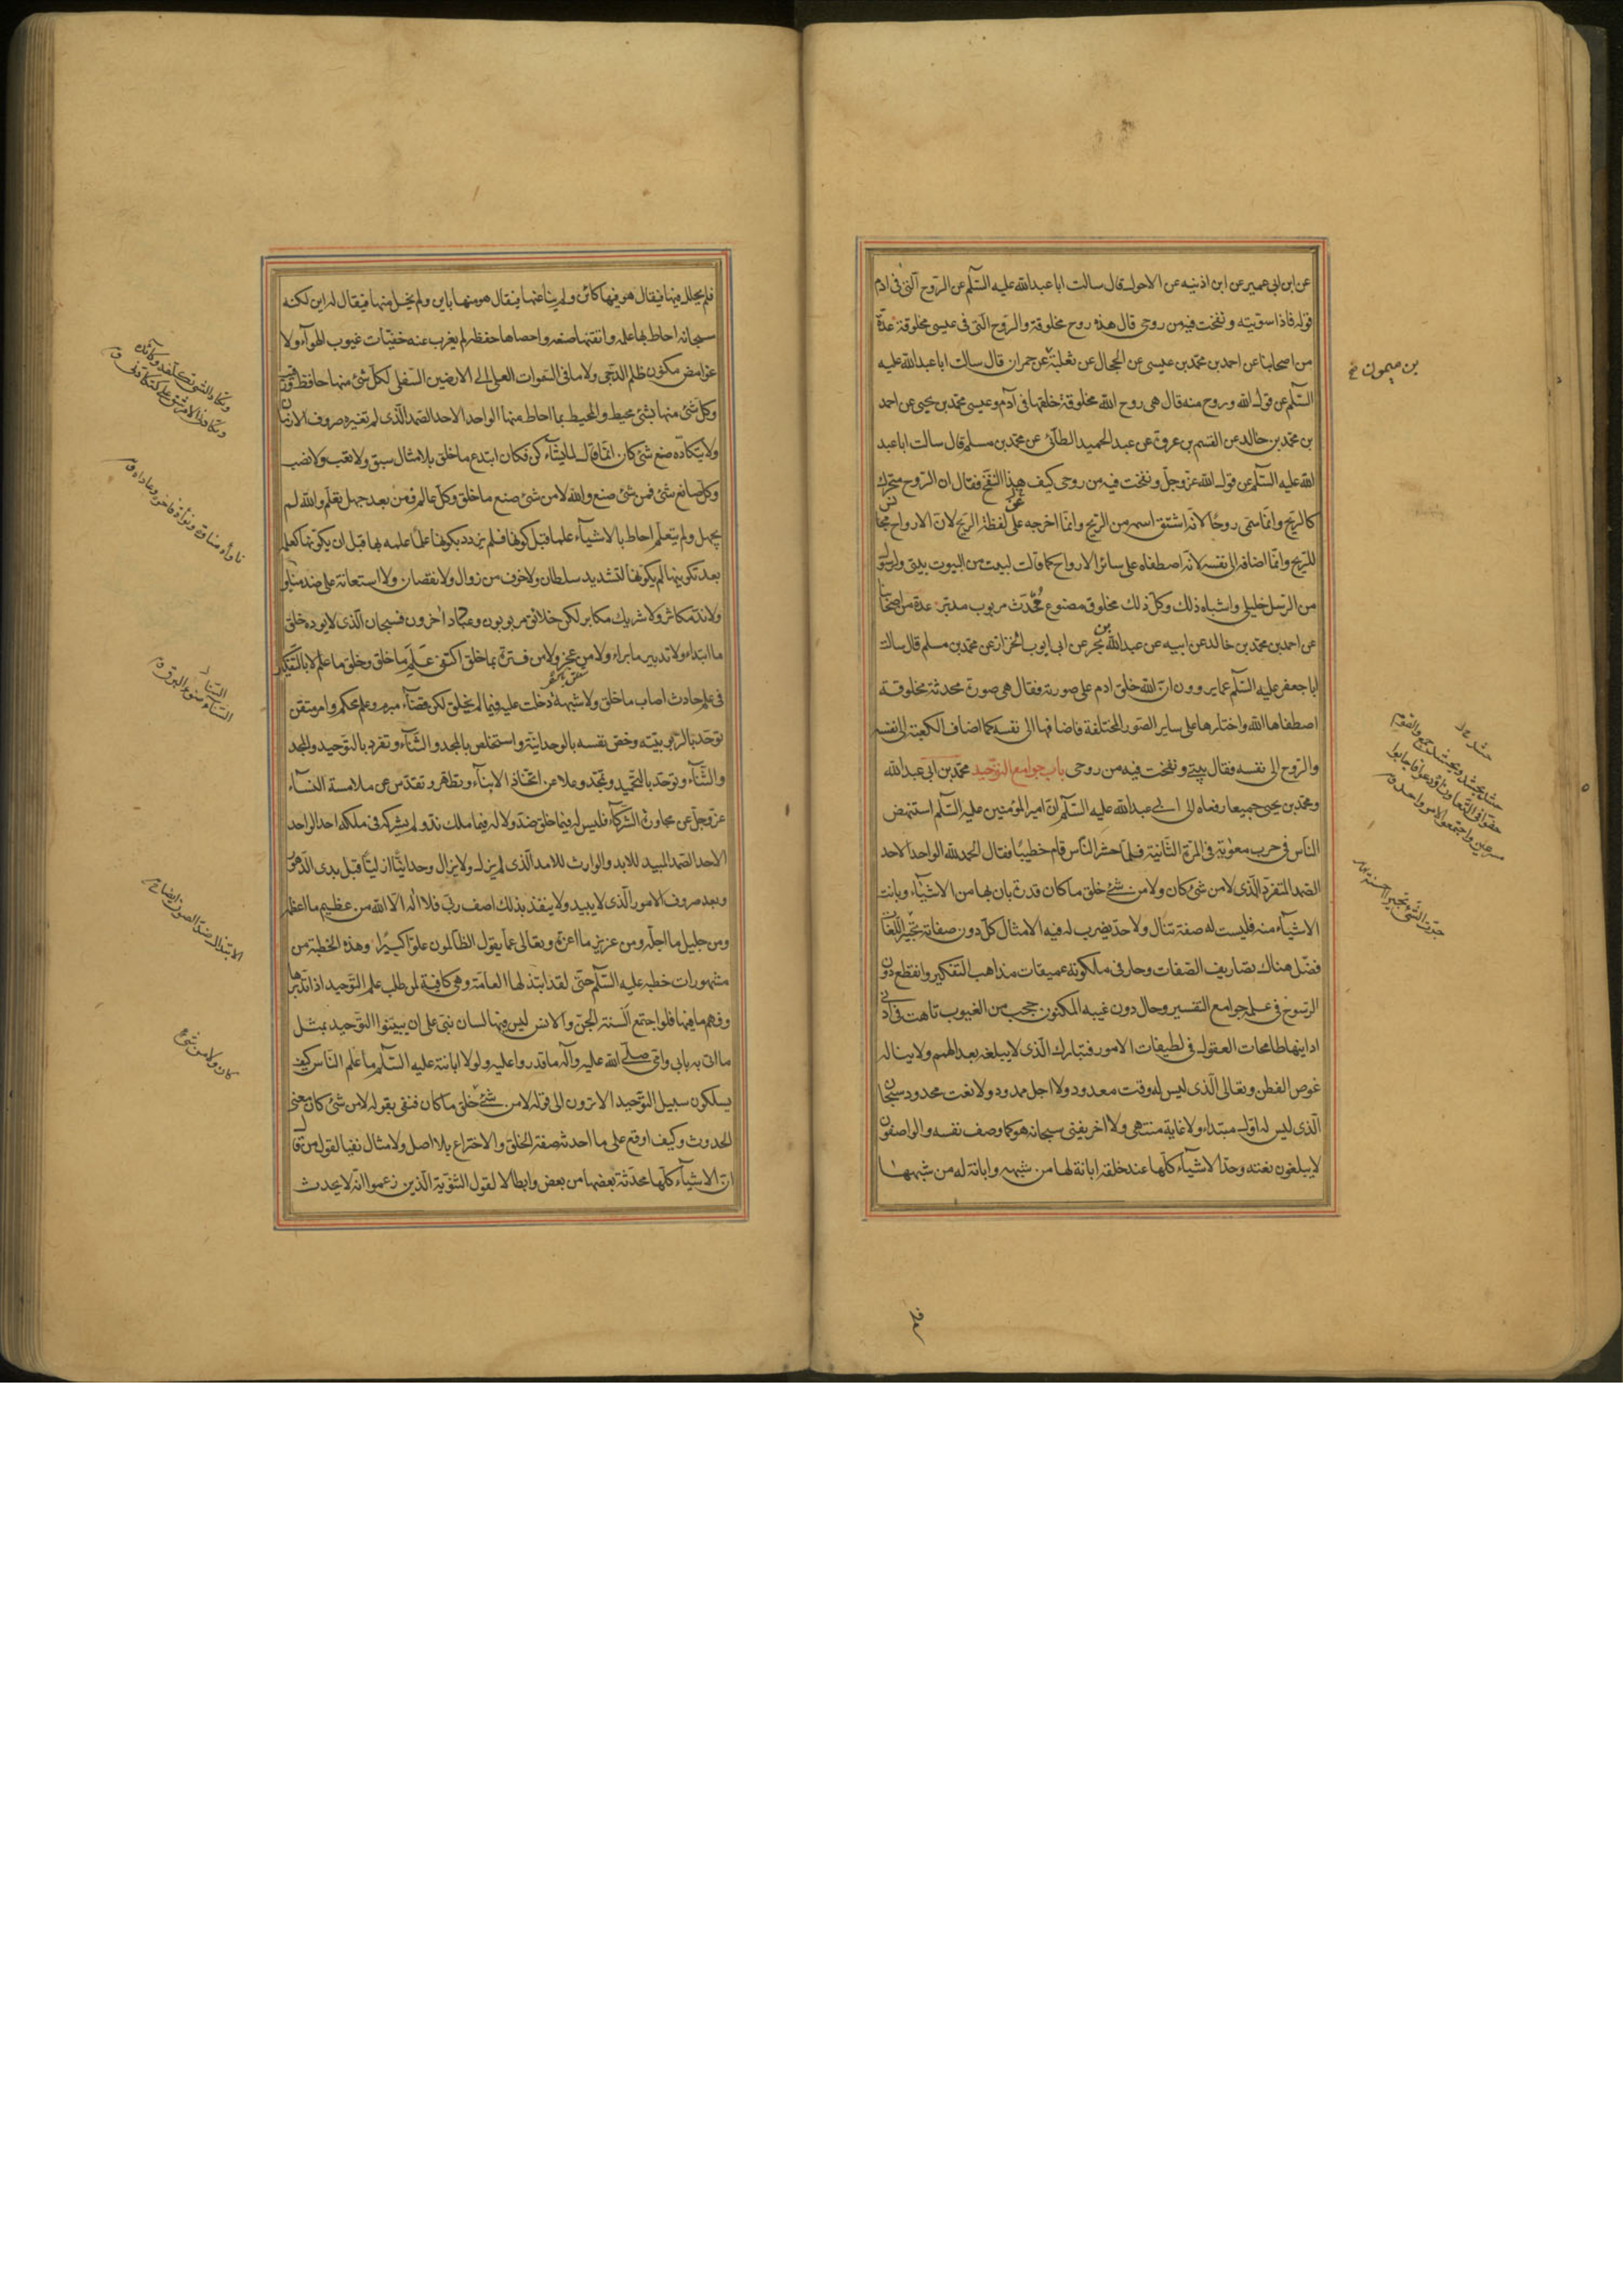 عن ابن ابى عمير عن ابن اذينه عن الاحول قال سالت ابا عبد الله عليه السّلم عن الرّوح الّتى فى ادم
قوله فاذا سوّيته و نفخت فيه من روحى قال هذه روح مخلوقة والرّوح الّتى فى عيسى مخلوقة عدّة
من اصحابنا عن احمد بن محمّد بن عيسى عن الحجال عن ثعلبة عن حمران قال سالت ابا عبد الله عليه
السّلم عن قول الله وروح منه قال هى روح الله مخلوقة خلقها فى آدم وعيسى محمّد بن يحيى عن احمد
بن محمّد بن خالد عن القسم بن عروة عن عبد الحميد الطآئى عن محمّد بن مسلم قال سالت ابا عبد
الله عليه السّلم عن قول الله عزّ وجلّ ونفخت فيه من روحى كيف هذا النّفخ فقال ان الرّوح متحرّك
كالرّيح وانّما سمّى روحًا لانّه اشتق اسمه من الرّيح وانّما اخرجه على لفظة الرّيح لانّ الارواح مجانس
للرّيح وانّما اضافه الى نفسه لانّه اصطفاه على سائر الارواح كما قال لبيت من البيوت بيتى ولرسول
من الرّسل خليلى واشباه ذلك وكلّ ذلك مخلوق مصنوع مُحدَث مربوب مدبّر عدة من اصحابنا
عن احمد بن محمّد بن خالد عن ابيه عن عبد الله بن بحر عن ابى ايوب الخزاز عن محمّد بن مسلم قال سالت
ابا جعفر عليه السّلم عمّا يروون انّ الله خلق ادم على صورته فقال هى صورة محدثة مخلوقة
اصطفاها الله واختارها على ساير الصّور المختلفة فاضافها الى نفسه كما اضاف الكعبة الى نفسه
والرّوح الى نفسه فقال بيتى ونفخت فيه من روحى باب جوامع التّوحيد محمّد بن ابى عبد الله
ومحمّد بن يحيى جميعا رفعاه الى ابى عبد الله عليه السّلم انّ امير المؤمنين عليه السّلم استنهض
النّاس فى حرب معوية فى المرّة الثّانية فلمّا حشر النّاس قام خطيبًا فقال الحمد لله الواحد الاحد
الصّمد المتفرّد الّذى لا من شئ كان ولا من شئ خلق ما كان قدرة بان بها من الاشيآء وبانت
الاشيآء منه فليست له صفة تنال ولا حدّ يضرب له فيه الامثال كلّ دون صفاته تحبير اللّغات
فضّل هناك تصاريف الصّفات وحار فى ملكوته عميقات مذاهب التّفكير وانقطع دون
الرّسوخ فى علمه جوامع التّفسير وحال دون غيبه المكنون حجب من الغيوب تاهت فى ادنى
ادانيها طامحات العقول فى لطيفات الامور فتبارك الّذى لا يبلغه بعد الهمم ولا يناله
غوص الفطن وتعالى الّذى ليس له وقت معدود ولا اجل ممدود ولا نعت محدود سبحان
الّذى ليس له اوّل مبتداء ولا غاية منتهى ولا اخر يفنى سبحانه هو كما وصف نفسه والواصفون
لا يبلغون نعته وحدّ الاشيآء كلّها عند خلقه ابانة لها من شبهه وابانة له من شبهها
بن ميمون خ
فلم
فلم يحلل فيها فيقال هو فيها كائن ولم ينأ عنها فيقال هو منها باين ولم يخل منها فيقال له اين لكنه
سبحانه احاط بها علمه واتقنها صنعه واحصاها حفظه لم يعزب عنه خفيّات غيوب الهوآء ولا
غوامض مكنون ظلم الدّجى ولا ما فى السّموات العلى الى الارضين السّفلى لكلّ شئ منها حافظ ورقيب
وكلّ شئ منها بشئ محيط والمحيط بما احاط منها الواحد الاحد الصّمد الّذى لم تغيره صروف الازمان
ولا يتكأده صنع شئ كان انّما قال لما يشآء كن فكان ابتدع ما خلق بلا مثال سبق ولا تعب ولا نصب
وكلّ صانع شئ فمن شئ صنع والله لا من شئ صنع ما خلق وكلّ عالم فمن بعد جهل تعلّم والله لم
يجهل ولم يتعلّم احاط بالاشيآء علما قبل كونها فلم يزدد بكونها علمًا علمه بها قبل ان يكونها كعلمه
بعد تكوينها لم يكونها لتشديد سلطان ولا خوف من زوال ولا نقصان ولا استعانة على ضد مناو
ولا ندّ مكاثر ولا شريك مكابر لكن خلائق مربوبون وعباد داخرون فسبحان الّذى لا يوده خلق
ما ابتداء ولا تدبير ما براء ولا من عجز ولا من فترة بما خلق اكتفى علم ما خلق وخلق ما علم لا بالتّفكير
فى علم حادث اصاب ما خلق ولا شبهة دخلت عليه فيما لم يخلق لكن قضآء مبرم وعلم محكم وامر متقن
توحّد بالرّبوبيّة وخصّ نفسه بالوحدانيّة واستخلص بالمجد والثّنآء وتفرّد بالتّوحيد والمجد
والثّنآء وتوحّد بالتّحميد وتمجّد وعلا عن اتّخاذ الابنآء وتطهّر وتقدّس عن ملامسة النّسآء
عزّ وجلّ عن مجاورة الشّركآء فليس له فيما خلق ضدّ ولا له فيما ملك ندّ ولم يشركه فى ملكه احد الواحد
الاحد الصّمد المبيد للابد والوارث للامد الّذى لم يزل ولا يزال وحدانيًّا ازليًّا قبل بدى الدّهور
وبعد صروف الامور الّذى لا يبيد ولا ينفذ بذلك اصف ربّى فلا اله الّا الله من عظيم ما اعظمه
ومن جليل ما اجلّه ومن عزيز ما اعزّه وتعالى عمّا يقول الظّالمون علوّا كبيرًا وهذه الخطبة من
مشهورات خطبه عليه السّلم حتّى لقد ابتذلها العامّة وهى كافية لمن طلب علم التّوحيد اذا تدبّرها
وفهم ما فيها فلو اجتمع السنة الجنّ والانس ليس فيها لسان نبىّ على ان يبيّنوا التّوحيد بمثل
ما اتى به بابى وامّى صلّى الله عليه وآله ما قدروا عليه ولولا ابانته عليه السّلم ما علم النّاس كيف
يسلكون سبيل التّوحيد الا ترون الى قوله لا من شئ خلق ما كان فنفى بقوله لا من شئ كان معنى
الحدوث وكيف اوقع على ما احدثه صفة الخلق والاختراع بلا اصل ولا مثال نفيا لقول من قال
انّ الاشيآء كلّها محدثة بعضها من بعض وابطالا لقول الثّنويّة الّذين زعموا انّه لا يحدث
كان ولا من شئ خ